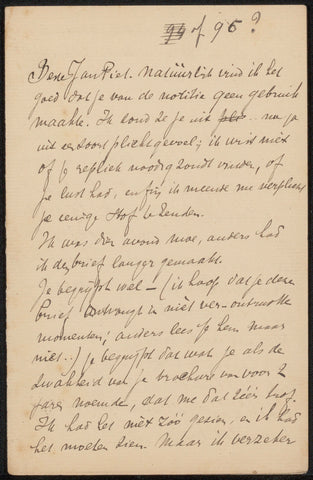 94 of 95?
Beste Jan Piet. Natuurlijk vind ik het
goed dat je van de notitie geen gebruik
maakte. Ik zond ze je uit
uit een soort plichtsgevoel; ik wist niet
of je repliek noodig zoudt vinden, of
je lust had, enfin ik meende me verplicht
je eenige stof te zenden.
Ik was dien avond moe, anders had
ik de brief langer gemaakt.
Je begrijpt wel – (ik hoop dat je deze
brief ontvangt in niet ver-ontrustte
momenten; anders lees je hem maar
niet..) Je begrijpt dat wat je als de
zwakheid van je brochure van voor 2
jaren noemde, dat me dat zéér trof.
Ik had het niet zóó gezien, en ik had
het moeten zien. Maar ik verzeker